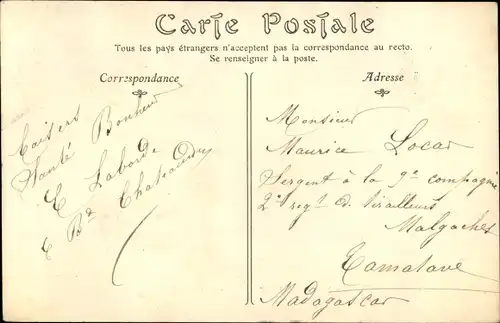 Carte Postale
Tous les pays étrangers n'acceptent pas la correspondance au recto.
Se renseigner à la poste.
Correspondance
Adresse
Baisers
Santé Bonheur
E Laborde
E Bd
Monsieur
Maurice Locar
Sergent à la 9e compagnie
2e regt d. tirailleurs
Malgaches
Tamatave
Madagascar